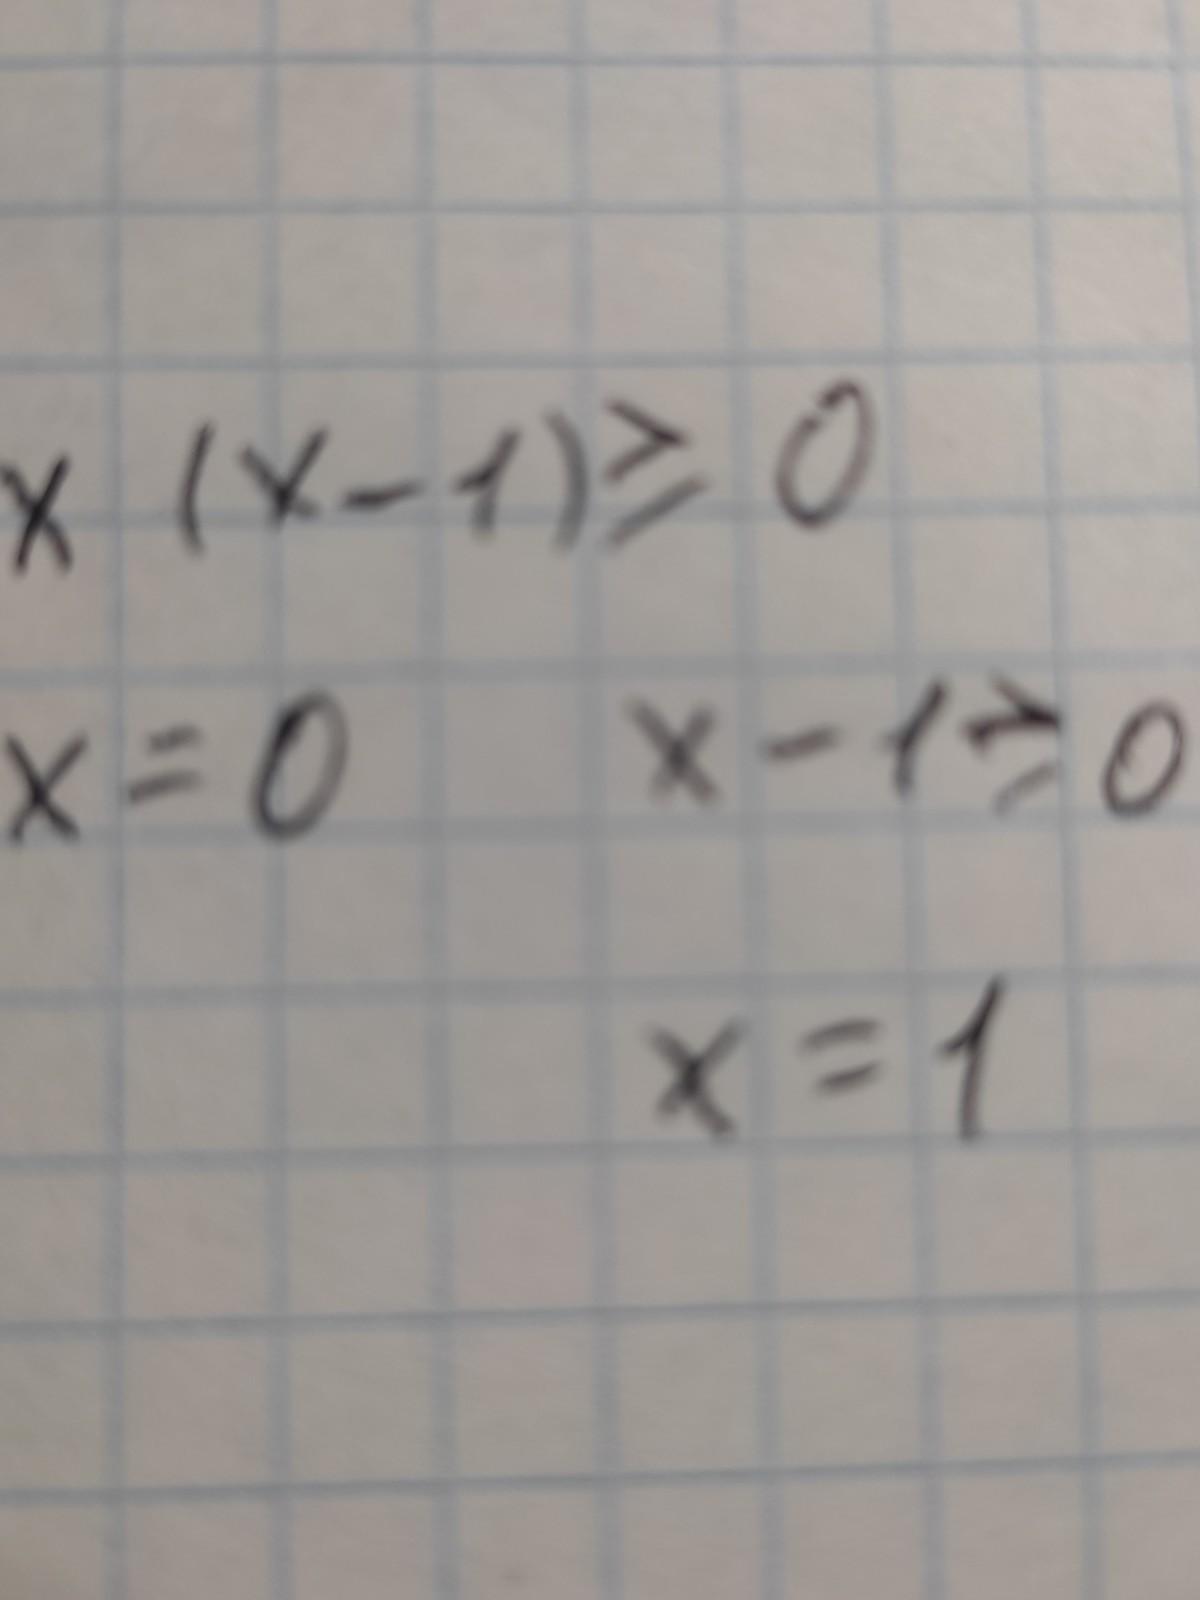 x (x-1) ≥ 0
x = 0 x - 1 ≥ 0
x = 1